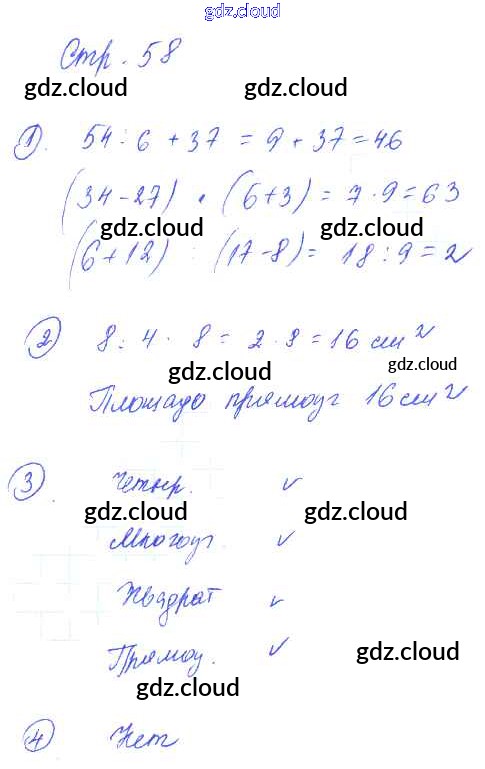 gdz.cloud
gdz.cloud
Стр. 58
gdz.cloud gdz.cloud
1). 54 : 6 + 37 = 9 + 37 = 46
(34 - 27) · (6 + 3) = 7 · 9 = 63
gdz.cloud gdz.cloud
(6 + 12) : (17 - 8) = 18 : 9 = 2
2) 8 : 4 · 8 = 2 · 8 = 16 см²
gdz.cloud gdz.cloud
Площадь прямоуг 16 см²
3 Четыр. ✓
gdz.cloud gdz.cloud
Многоуг. ✓
Квадрат ✓
Прямоу. ✓
gdz.cloud
gdz.cloud
4 Нет